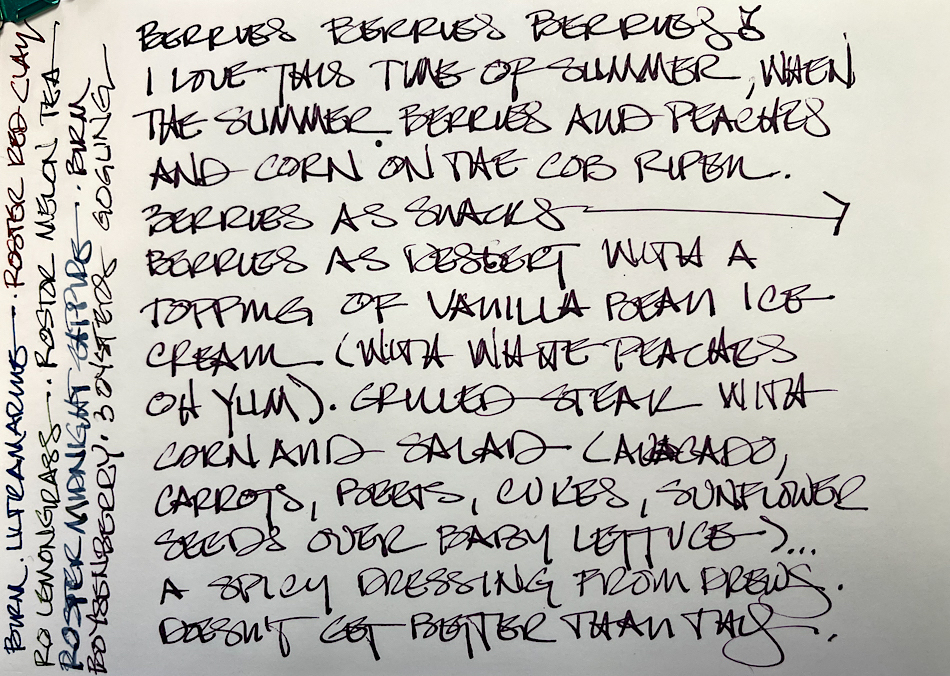 BERRIES BERRIES BERRIES
I LOVE THIS TIME OF SUMMER, WHEN
THE SUMMER BERRIES AND PEACHES
AND CORN ON THE COB RIPEN.
BERRIES AS SNACKS
BERRIES AS DESSERT WITH A
TOPPING OF VANILLA BEAN ICE
CREAM (WITH WHITE PEACHES
OH YUM). GRILLED STEAK WITH
CORN AND SALAD (
CARROTS, BEETS, CUKES, SUNFLOWER
SEEDS OVER BABY LETTUCE)...
A SPICY DRESSING FROM DREWS.
DOESN'T GET BETTER THAN THIS.
BIRM. ULTRAMARINE. ROSTER RED CLAY
RO LEMONGRASS. ROSTOR MELON TEA
ROSTER MIDNIGHT SAPPHIRE. BIRM
BOYSENBERRY. 3 OYSTERS